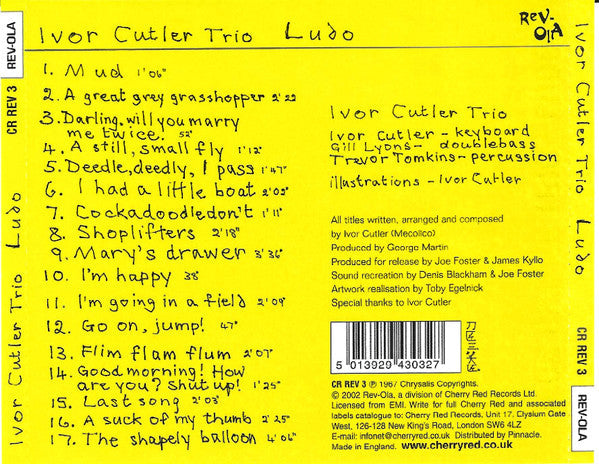 Ivor Cutler Trio Ludo
ReV-
OlA
1. Mud 1'06"
2. A great grey grasshopper 2'22
3. Darling, will you marry
me twice! 52"
4. A still, small fly 1'12"
5. Deedle, deedly, I pass 1'47"
6. I had a little boat 2'03"
7. Cockadoodledon't 1'11"
8. Shoplifters 2'18"
9. Mary's drawer 3'36"
10. I'm happy 38"
11. I'm going in a field 2'09"
12. Go on, jump! 47"
13. Flim flam flum 2'07"
14. Good morning! How
are you? Shut up! 1'25"
15. Last song 2'03"
16. A suck of my thumb 2'25"
17. The shapely balloon 4'06"
Ivor Cutler Trio
Ivor Cutler - keyboard
Gill Lyons - doublebass
Trevor Tomkins - percussion
illustrations - Ivor Cutler
All titles written, arranged and composed
by Ivor Cutler (Mecolico)
Produced by George Martin
Produced for release by Joe Foster & James Kyllo
Sound recreation by Denis Blackham & Joe Foster
Artwork realisation by Toby Egelnick
Special thanks to Ivor Cutler
5 013929 430327
CR REV 3 ℗ 1967 Chrysalis Copyrights.
© 2002 Rev-Ola, a division of Cherry Red Records Ltd.
Licensed from EMI. Write for full Cherry Red and associated
labels catalogue to: Cherry Red Records, Unit 17, Elysium Gate
West, 126-128 New King's Road, London SW6 4LZ
E-mail: infonet@cherryred.co.uk Distributed by Pinnacle.
Made in England. www.cherryred.co.uk
REV-OLA
CR REV 3
Ivor Cutler Trio Ludo
Ivor Cutler Trio Ludo
CR REV 3
REV-OLA